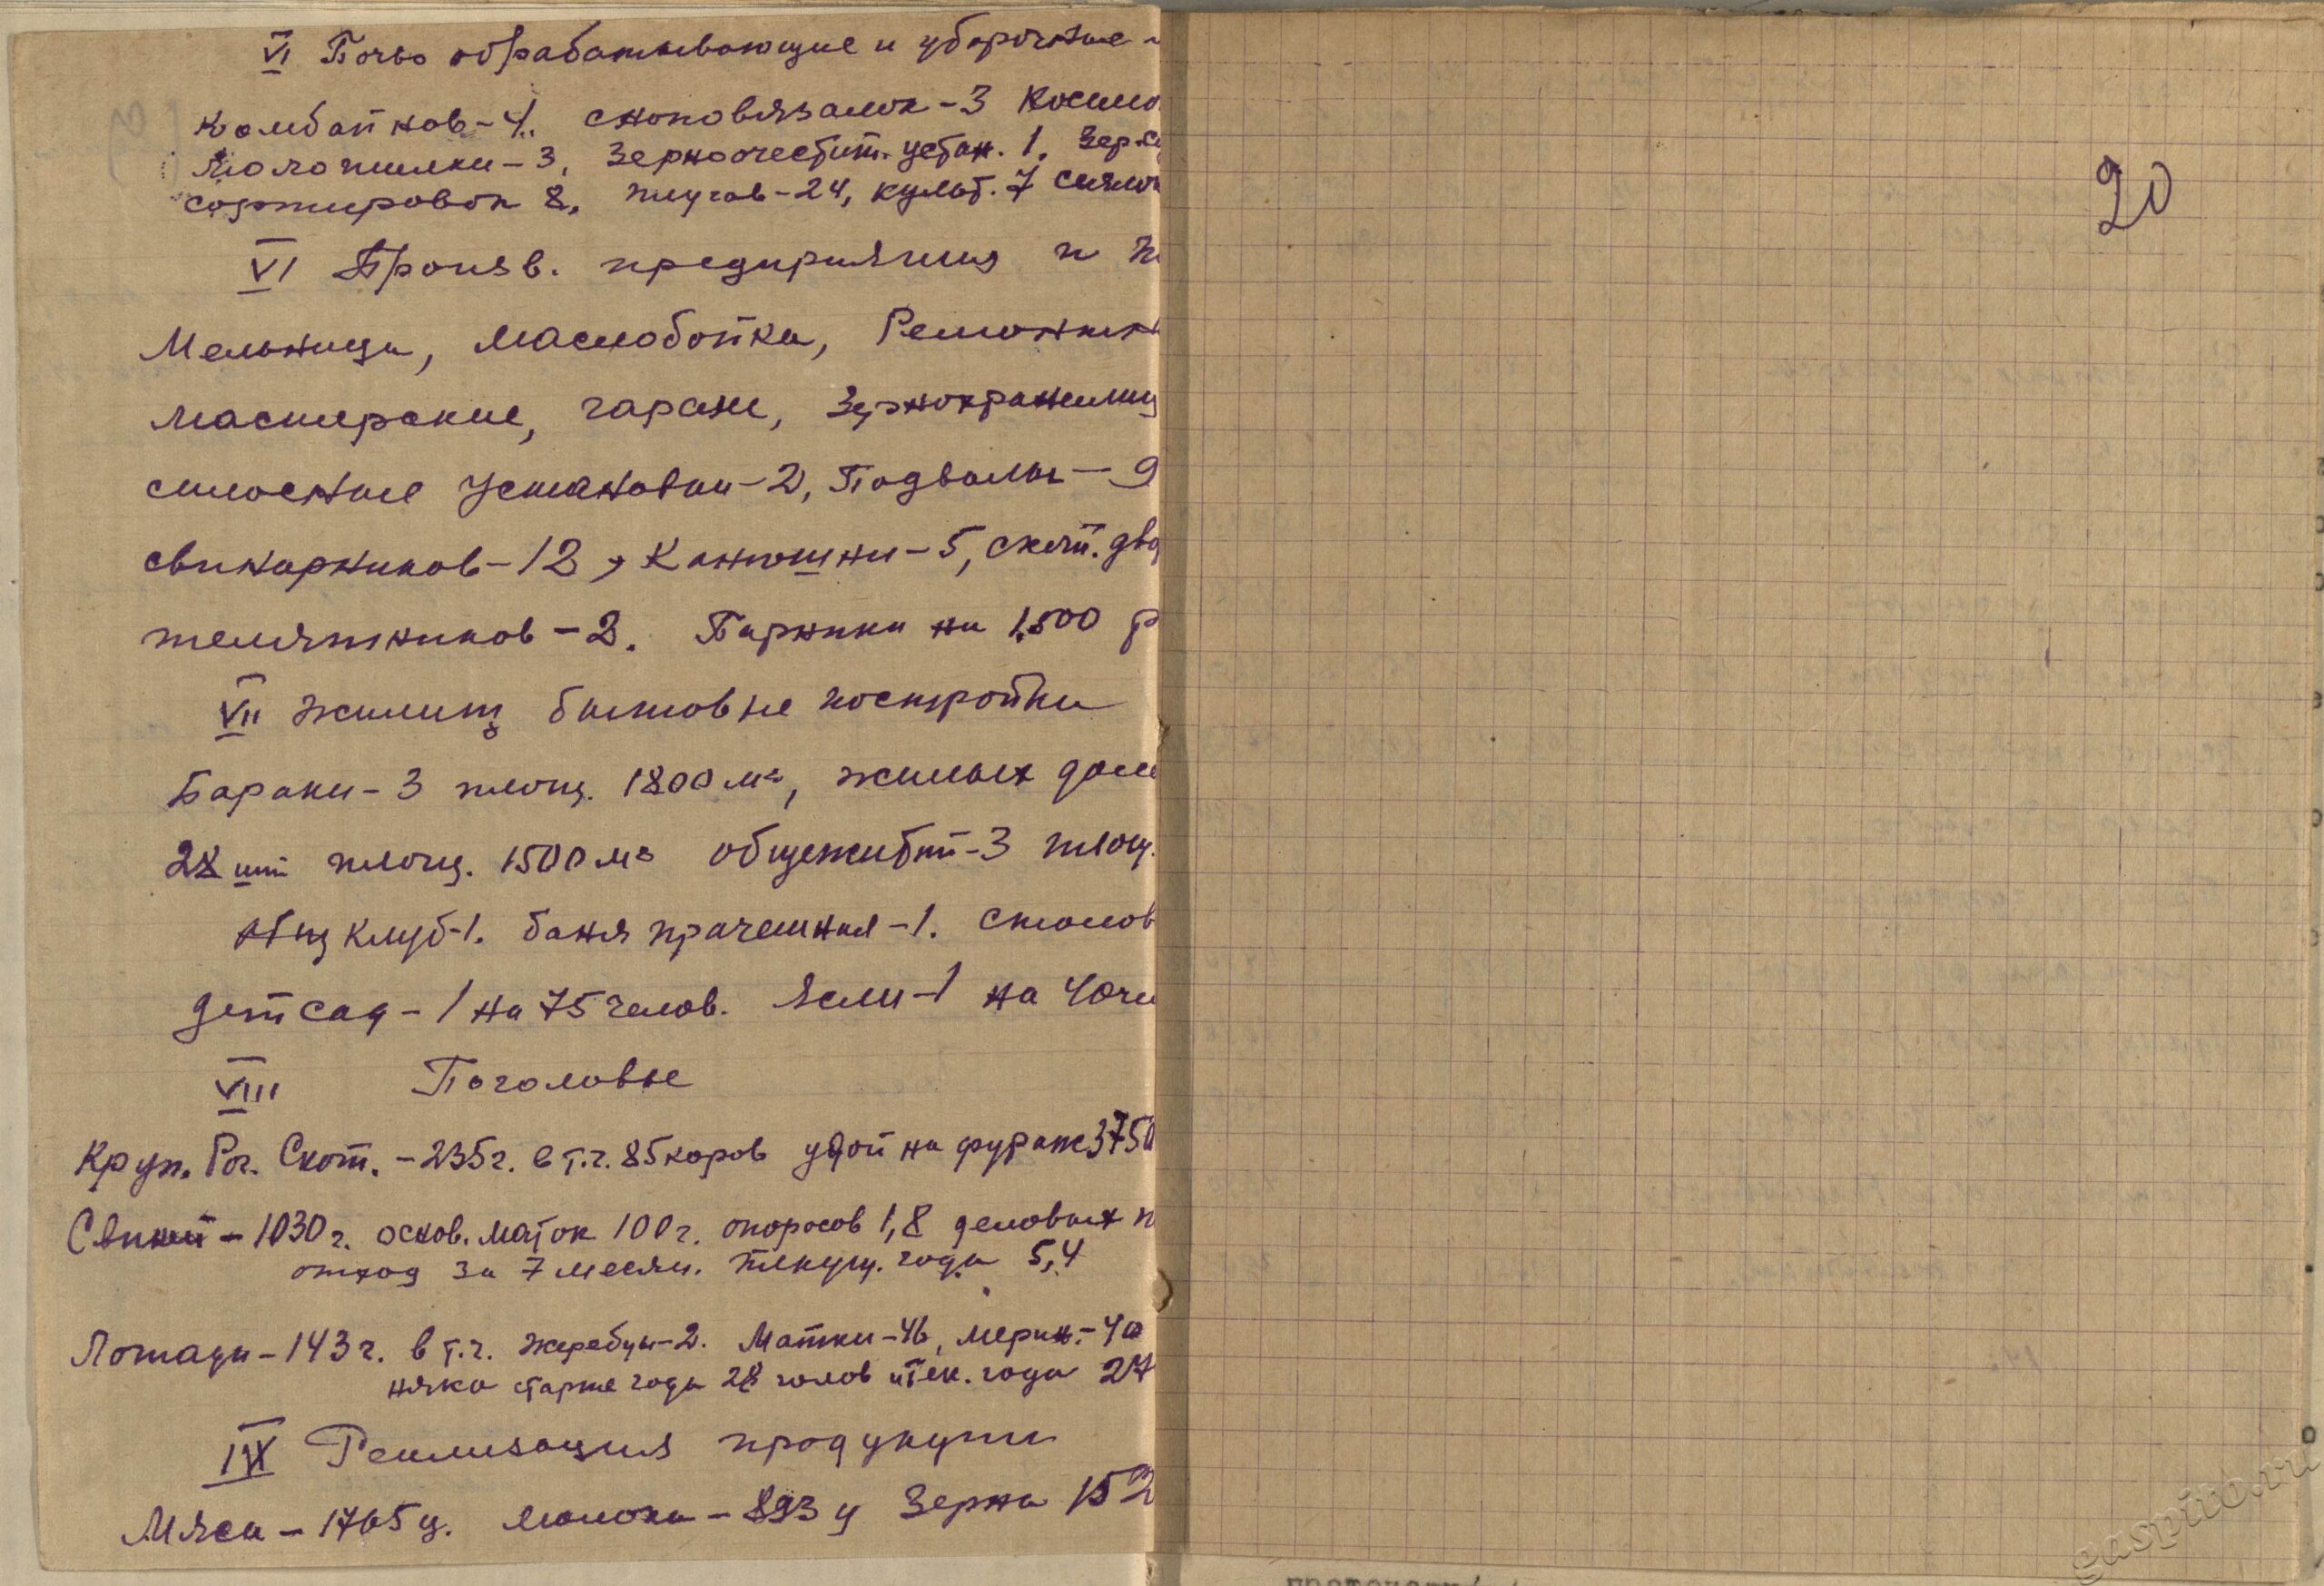 VI Почво обрабатывающие и уборочные
Комбайнов-4. сноповязалок-3
Молотилки-3, Зерноочестит. устан. 1,
сортировок 8, плугов-24, культ. 7
VI Произв. предприятия и
Мельница, маслобойка, Ремонтн
мастерские, гараж, Зернохранилищ
силосные установки-2, Подвалы-9
свинарников-12, Конюшни-5, скотн. дво
телятников-2. Парники на 1500 р
VII жилищ бытовые постройки
Бараки-3 площ. 1800 м², жилых дом
28 шт площ. 1500 м² общежитий-3 площ.
клуб-1. баня прачешная-1. столов
детсад-1 на 75 челов. Ясли-1 на 40 че
VIII Поголовье
Круп. Рог. Скот. -235 г. в т.г. 85 коров удой на фураж 3750
Свиней-1030 г. основ. маток 100 г. опоросов 1,8 деловых п
отход за 7 месяц. текущ. года 5,4
Лошади-143 г. в т.г. жеребцы-2. Матки-46, мерин.-40
няка старше года 28 голов и тек. года 27
IX Реализация продукции
Мяса-1765 ц. молока-893 ц Зерна 152
20
gaspito.ru